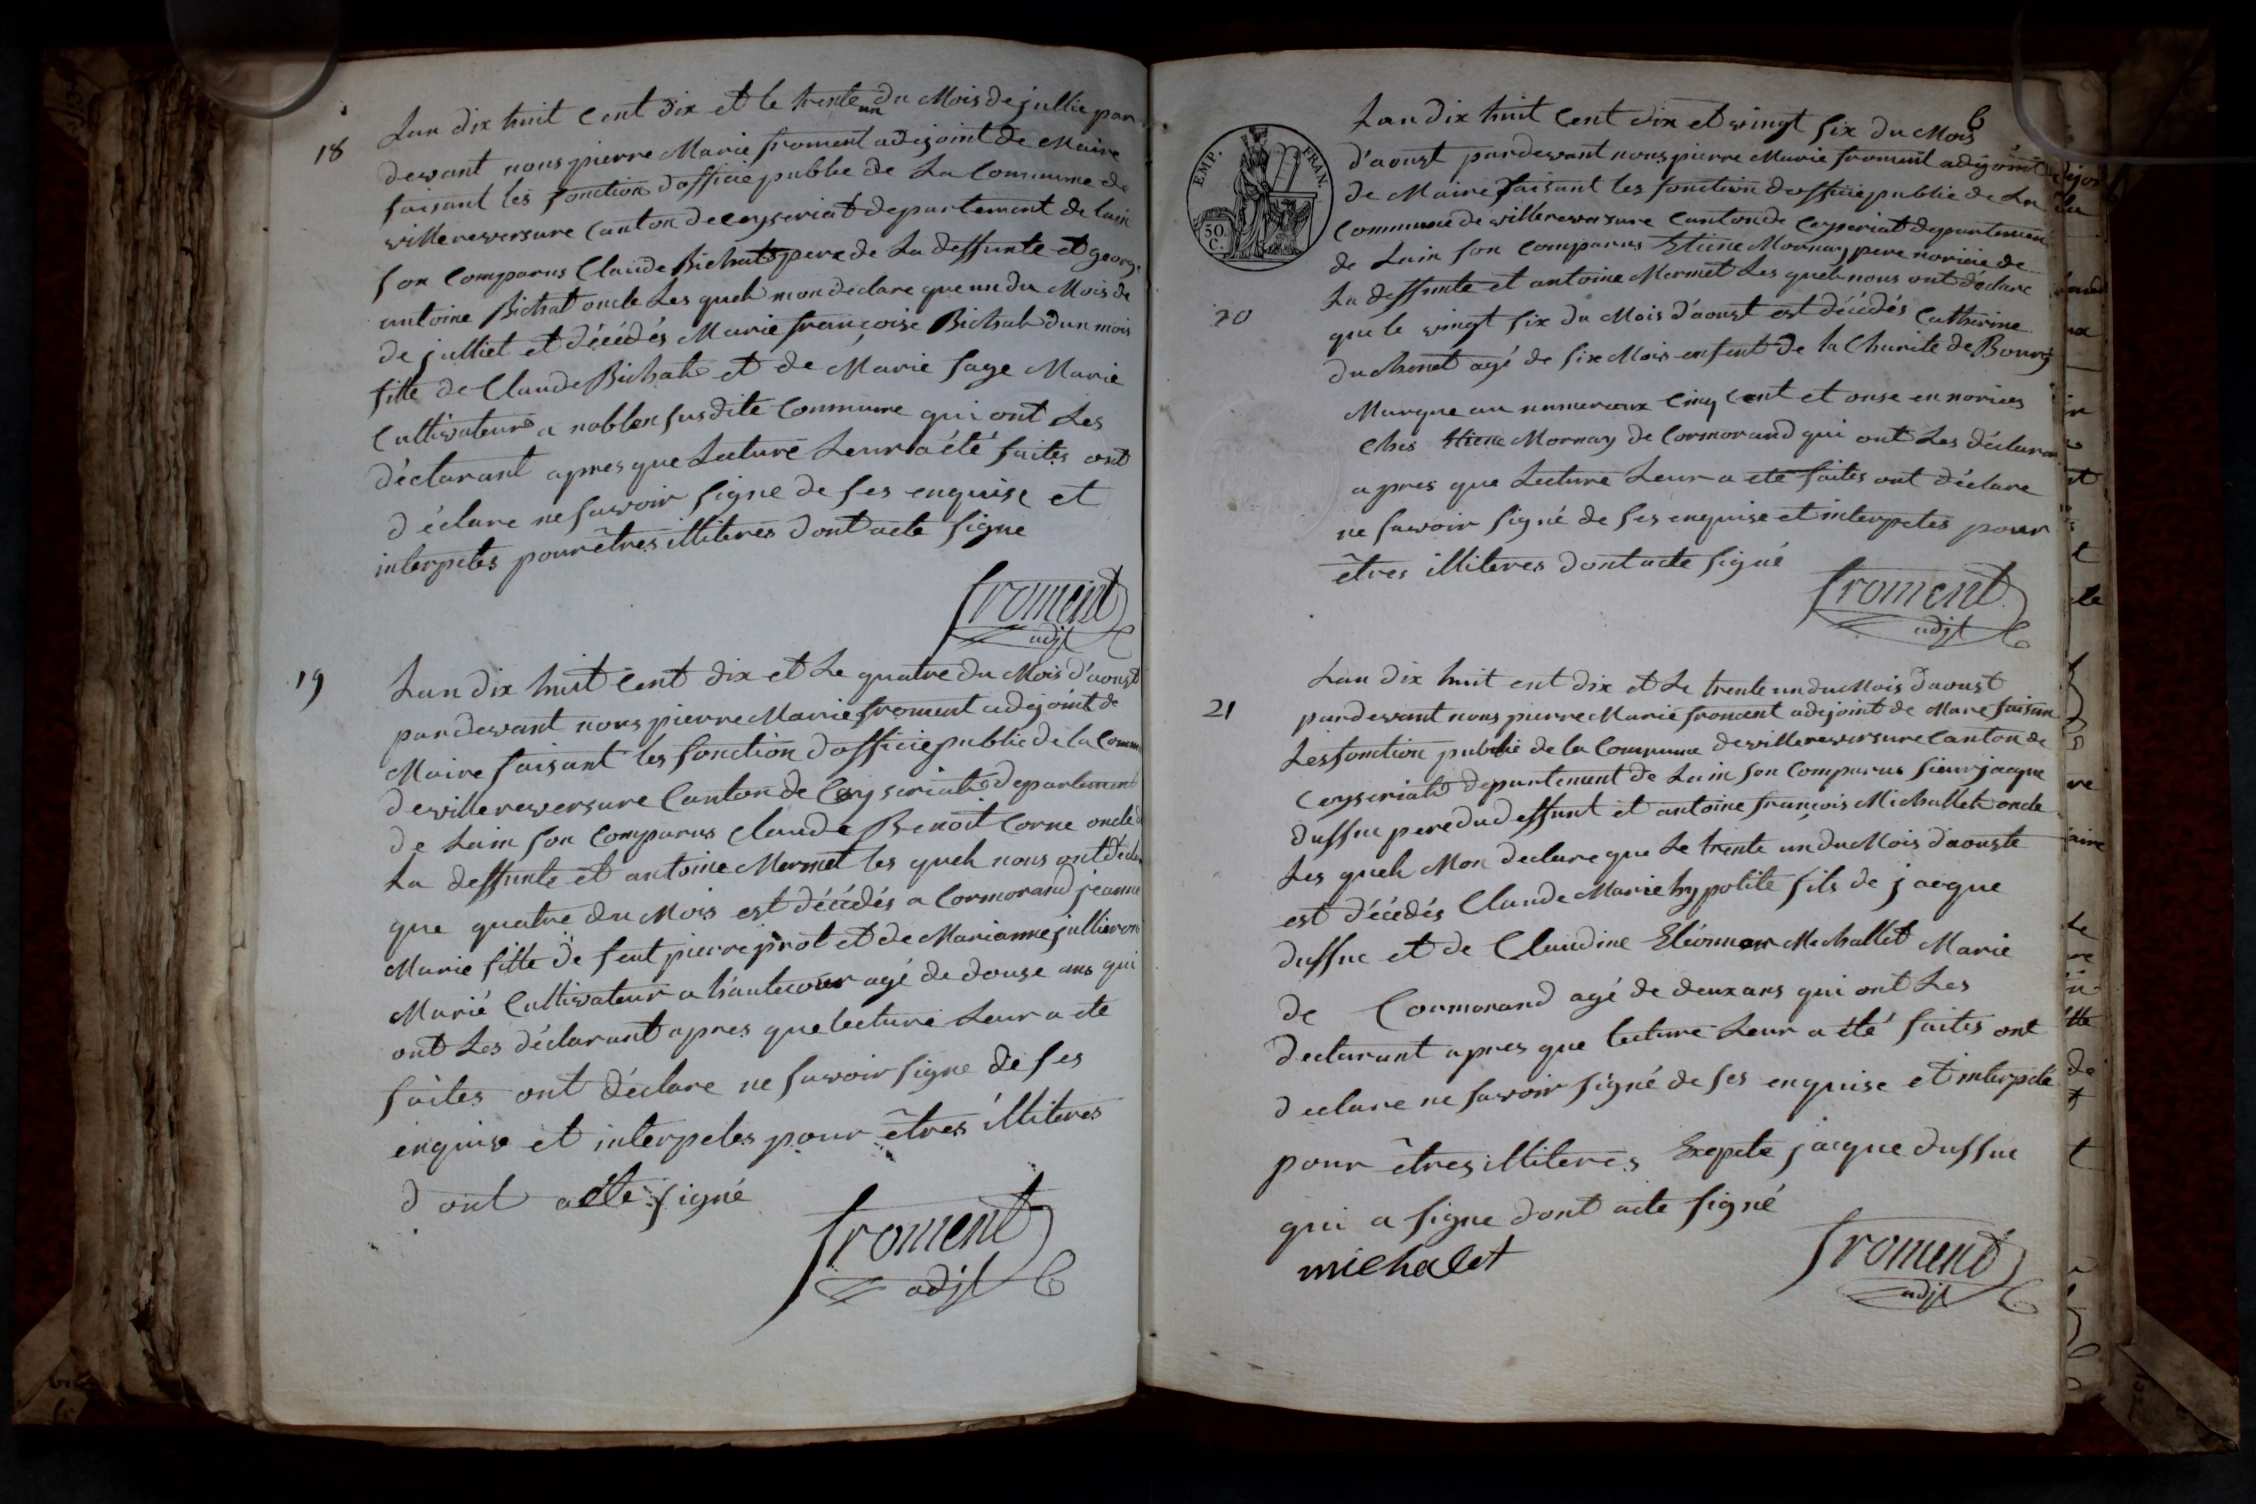 18
Lan dix huit Cent dix et le trente un du Mois de jullie par
devant nous pierre Marie froment adejoint de Maire
faisant les fonction dofficie publie de La Commune de
villereversure Canton de Ceyseriat departement de lain
son Comparus Claude Bichat pere de La deffunte et george
antoine Bichat oncle Les queh mon declare que un du Mois de
de julliet et décédés Marie françoise Bichat dun mois
fille de Claude Bichat et de Marie faye Marie
Cultivateur a noblen susdite Commune qui ont Les
déclarant apres que Lecture Leur a été faites ont
déclare ne savoir signe de ses enquise et
interpetes pour êtres illiteres dont acte signe
froment
adjt
19
Lan dix huit Cent dix et Le quatre du Mois d'aoust
pardevant nous pierre Marie froment adejoint de
Maire faisant les fonction dofficie public de la Comm
de villereversure Canton de Ceyseriat departement
de Lain son Comparus Claude Benoit Corne oncle d
La deffunte et antoine Mermet les queh nous ont décla
que quatre du Mois est décédés a Cormorand jeanne
Marie fille de feut pierre pirot et de Marianne jullieron
Marié Cultivateur a hautecour agé de douse ans qui
ont Les déclarant apres que lecture Leur a ete
faites ont déclare ne savoir signe de ses
enquise et interpetes pour êtres illiteres
dont acte signé
froment
adjt
6
EMP. FRAN.
50.
C.
Lan dix huit Cent dix et vingt six du Mois
d'aoust pardevant nous pierre Marie froment adejoint
de Maire faisant les fonction dofficie publie de La
Commune de villereversure Canton de Ceyseriat departemen
de Lain son Comparus Etiene Mornay pere noricie de
La deffunte et antoine Mermet Les queh nous ont déclare
20
que le vingt six du Mois d'aoust est décédés Catherine
duchenet agé de six Mois enfent de la Charite de Bourg
Marque au numeraux Cinq Cent et onse en norices
Ches Etiene Mornay de Cormorand qui ont Les déclaran
apres que Lecture Leur a eté faites ont déclare
ne savoir signé de ses enquise et interpetes pour
êtres illiteres dont acte signé
froment
adjt
21
Lan dix huit ent dix et Le trente un du Mois daoust
pardevant nous pierre Marie froment adejoint de Mare faisan
Les fonction publie de la Commune de villereversure Canton de
Ceyseriat departement de Lain son Comparus sieur jacque
duffue pere du deffunt et antoine françois Michallet oncle
Les queh Mon declare que Le trente un du Mois daouste
est décédés Claude Marie hypolite fils de jacque
duffue et de Claudine Eléonnor Michallet Marie
de Cormorand agé de deux ans qui ont Les
declarant apres que lecture Leur a été faites ont
declare ne savoir signé de ses enquise et interpete
pour êtres illiteres Exepte jacque duffue
qui a signe dont acte signé
michalet
froment
adjt